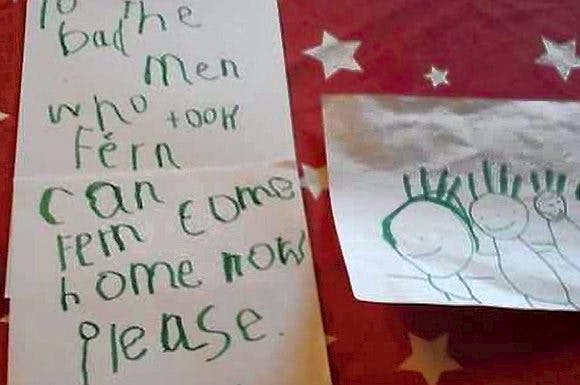 To the
bad
men
who took
Fern
can
Fern come
home now
please.